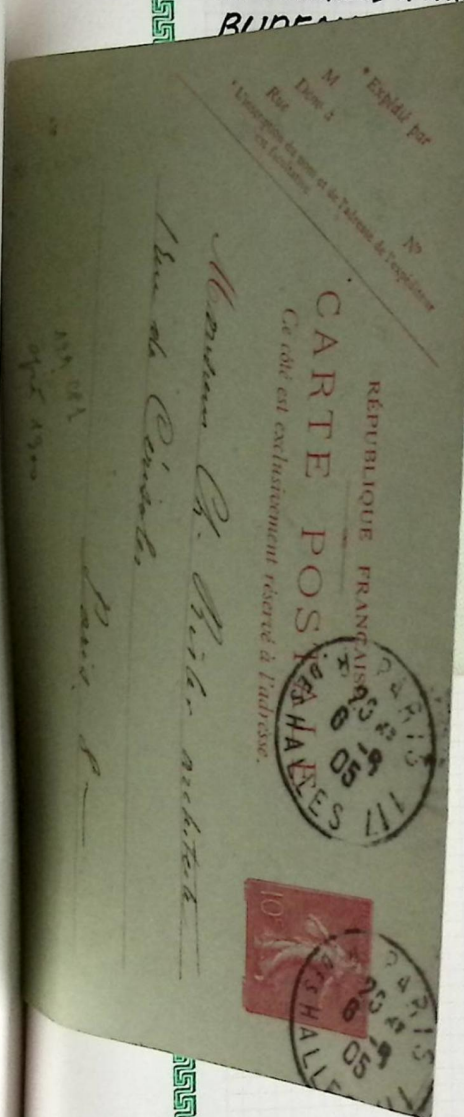 * Expédié par
M
Dom. à
Rue N°
* L'inscription du nom et de l'adresse de l'expéditeur
est facultative
RÉPUBLIQUE FRANÇAISE
CARTE POSTALE
Ce côté est exclusivement réservé à l'adresse.
PARIS 117
20 45
8 - 9
05
DES HALLES
10
PARIS
20 45
8 - 9
05
DES HALLES
Monsieur Ch. architecte
rue de Cérisoles
Paris 8